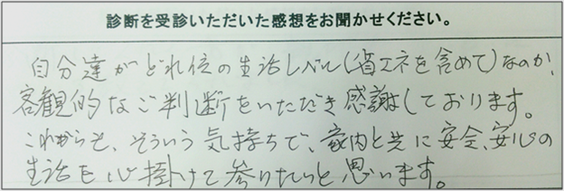 診断を受診いただいた感想をお聞かせください。
自分達がどれ位の生活レベル(省エネを含めて)なのか、
客観的なご判断をいただき感謝しております。
これからも、そういう気持ちで、家内と共に安全、安心の
生活を心掛けて参りたいと思います。